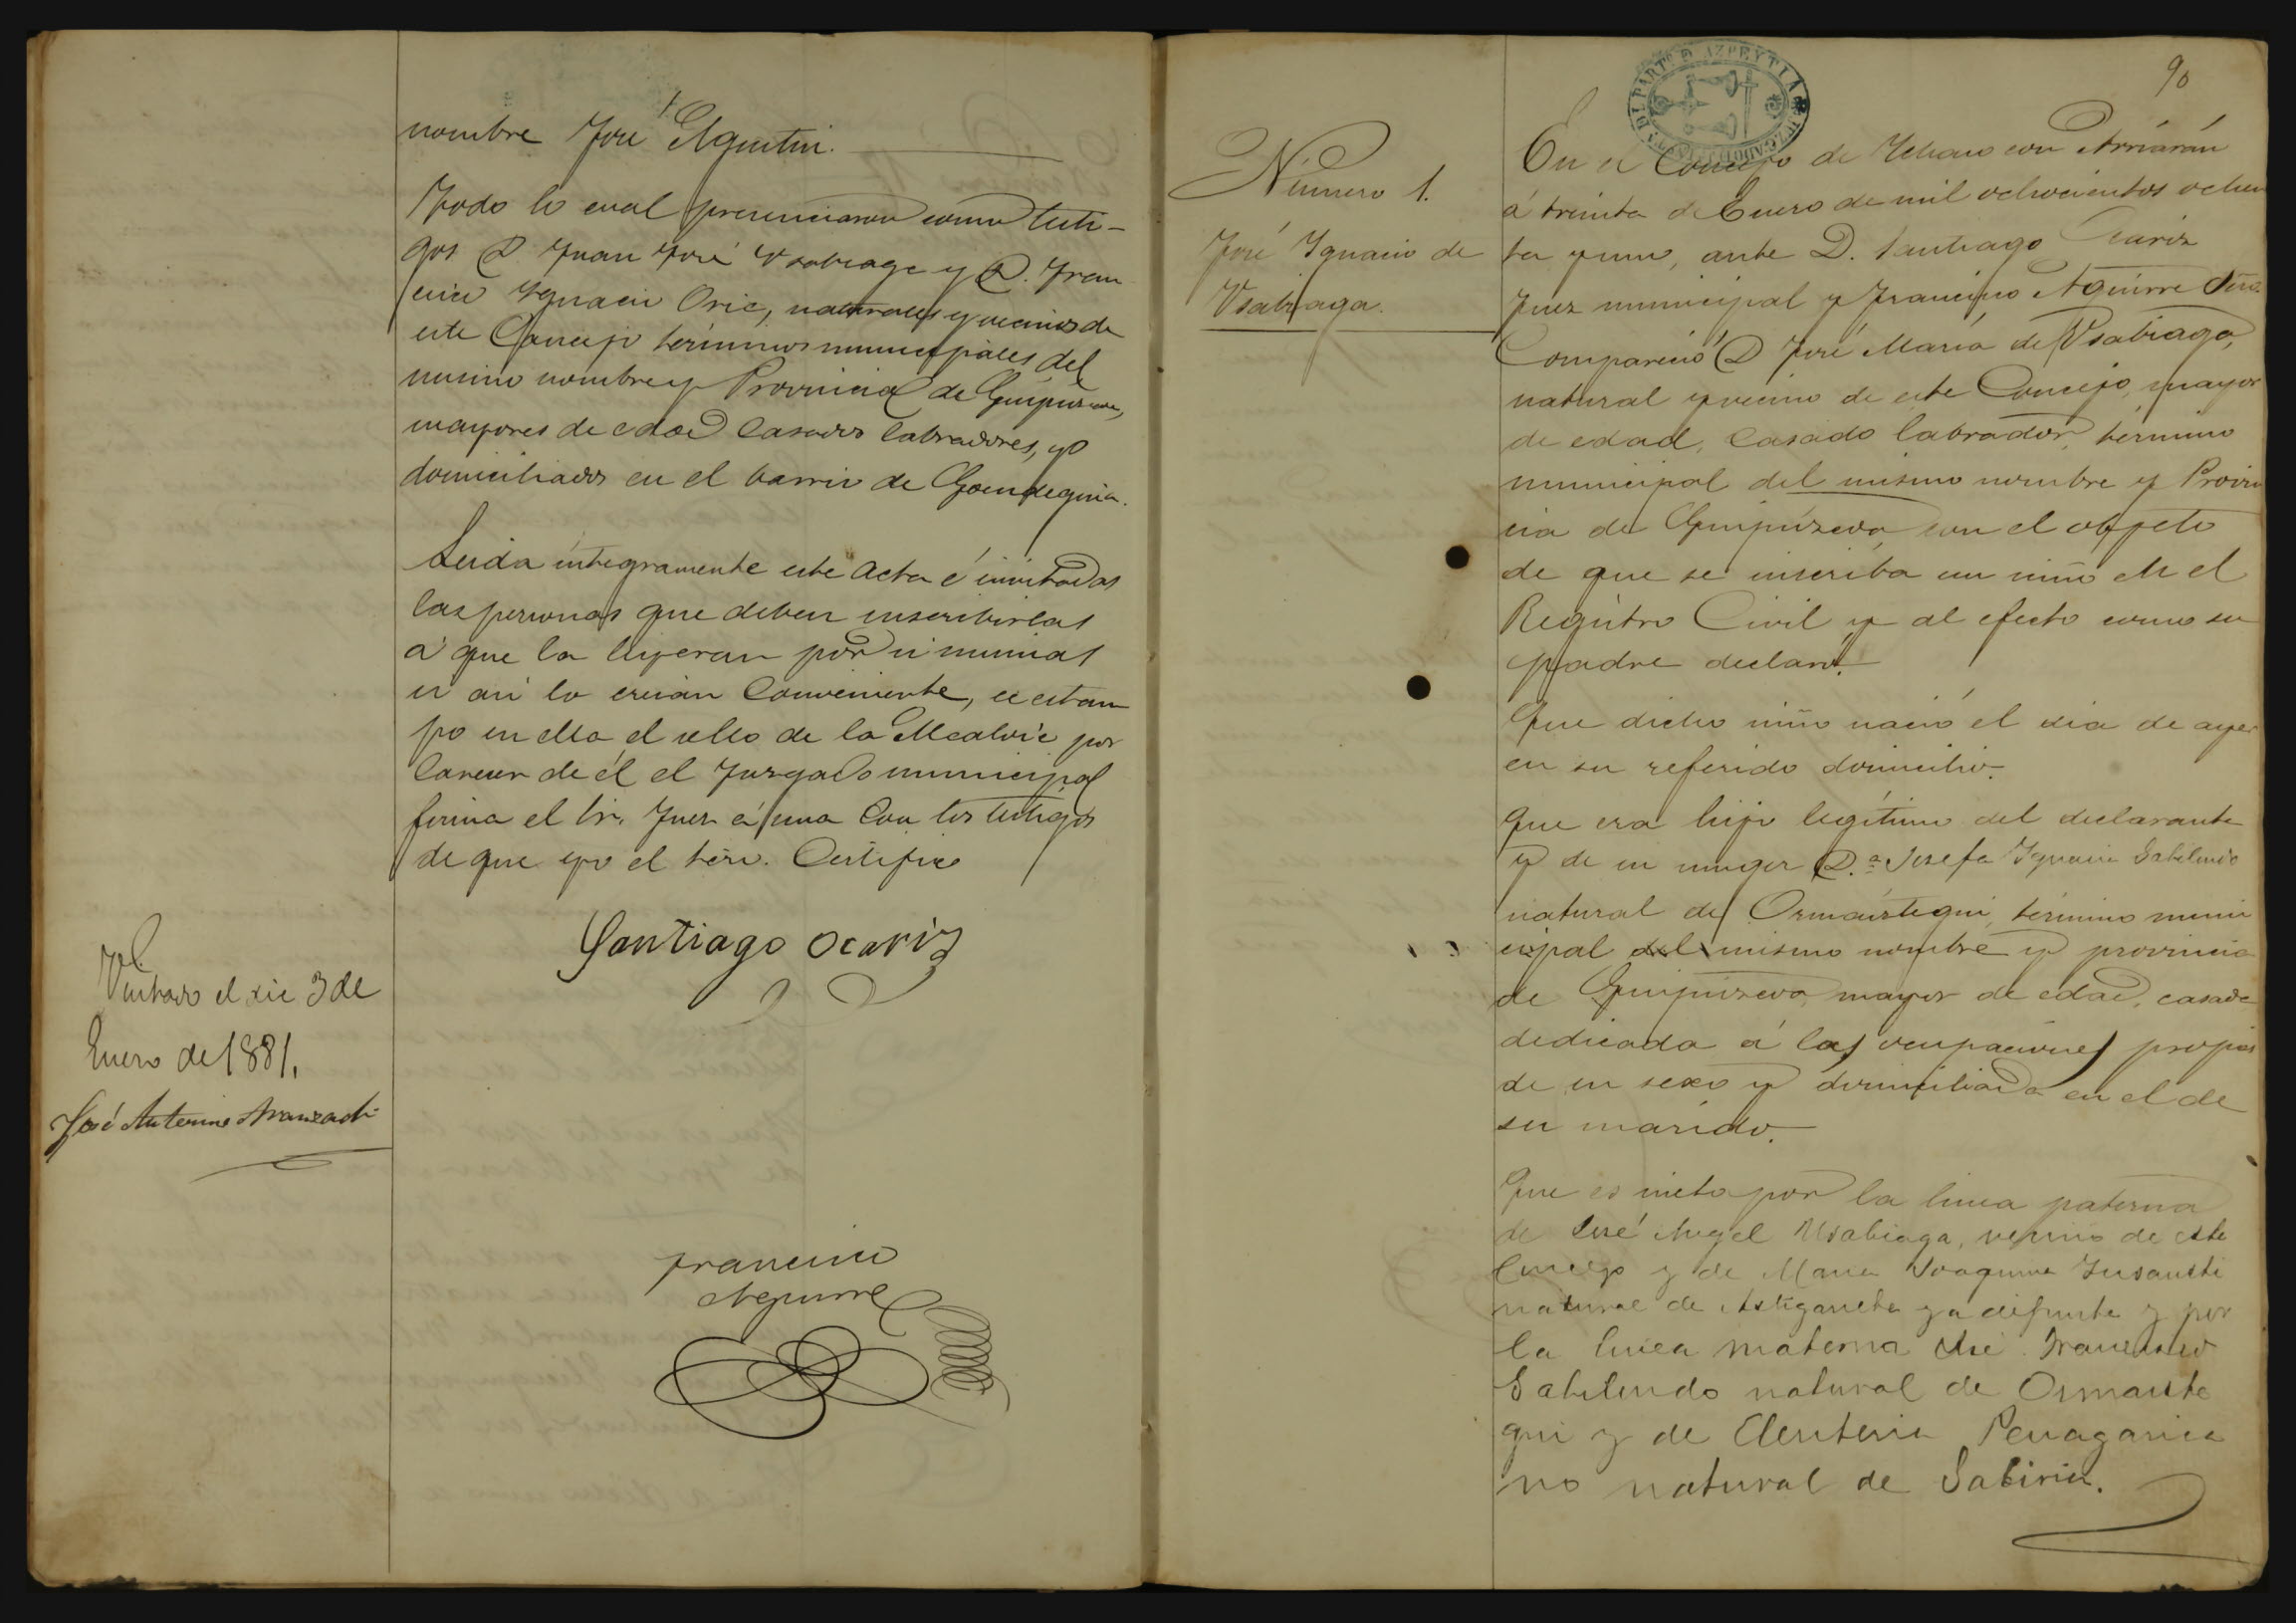 nombre José Agustin.
Todo lo cual presenciaron como testi-
gos D. Juan José Usabiaga y D. Fran
cisco Ignacio Oria, naturales y vecinos de
este Concejo términos municipales del
mismo nombre y Provincia de Guipuzcoa,
mayores de edad Casados labradores, y
domiciliados en el barrio de Goendeguia.
Leida integramente este Acta é invitadas
las personas que deben inscribirlas
á que la leyeran por si mismas
si asi lo creian Conveniente, se estam
po en ella el sello de la Alcaldia por
Carecer de él el Juzgado municipal
firma el Sr. Juez á una Con los testigos
de que yo el Srio. Certifico
Santiago Ocariz
Francisco
Aguirre
Visitado el dia 3 de
Enero de 1881.
José Antonino Aranzadi
PARTº D AZPEYTIA
90
Número 1.
José Ignacio de
Usabiaga.
En el Concejo de Ichaso con Arriárán
á treinta de Enero de mil ochocientos ochen
ta y uno, ante D. Santiago Ocariz
Juez municipal y Francisco Aguirre Srio.
Compareció D José María de Usabiaga,
natural y vecino de este Concejo, mayor
de edad, Casado labrador, término
municipal del mismo nombre y Provin
cia de Guipúzcoa con el objeto
de que se inscriba un niño en el
Registro Civil y al efecto como su
padre declaró.
Que dicho niño nació el dia de ayer
en su referido domicilio.
Que era hijo legítimo del declarante
y de su muger D.ª Josefa Ignacia Sabilundo
natural de Ormáiztegui, término muni
cipal del mismo nombre y provincia
de Guipúzcoa, mayor de edad, casada
dedicada á las ocupaciones propias
de su sexo y domiciliada en el de
su marido.
Que es nieto por la linea paterna
de José Angel Usabiaga, vecino de este
Concejo y de Maria Joaquina Insausti
natural de Astigarreta ya difunta y por
la linea materna de Francisco
Sabilundo natural de Ormaiste
gui y de Eleuteria Penagarica
no natural de Gabiria.